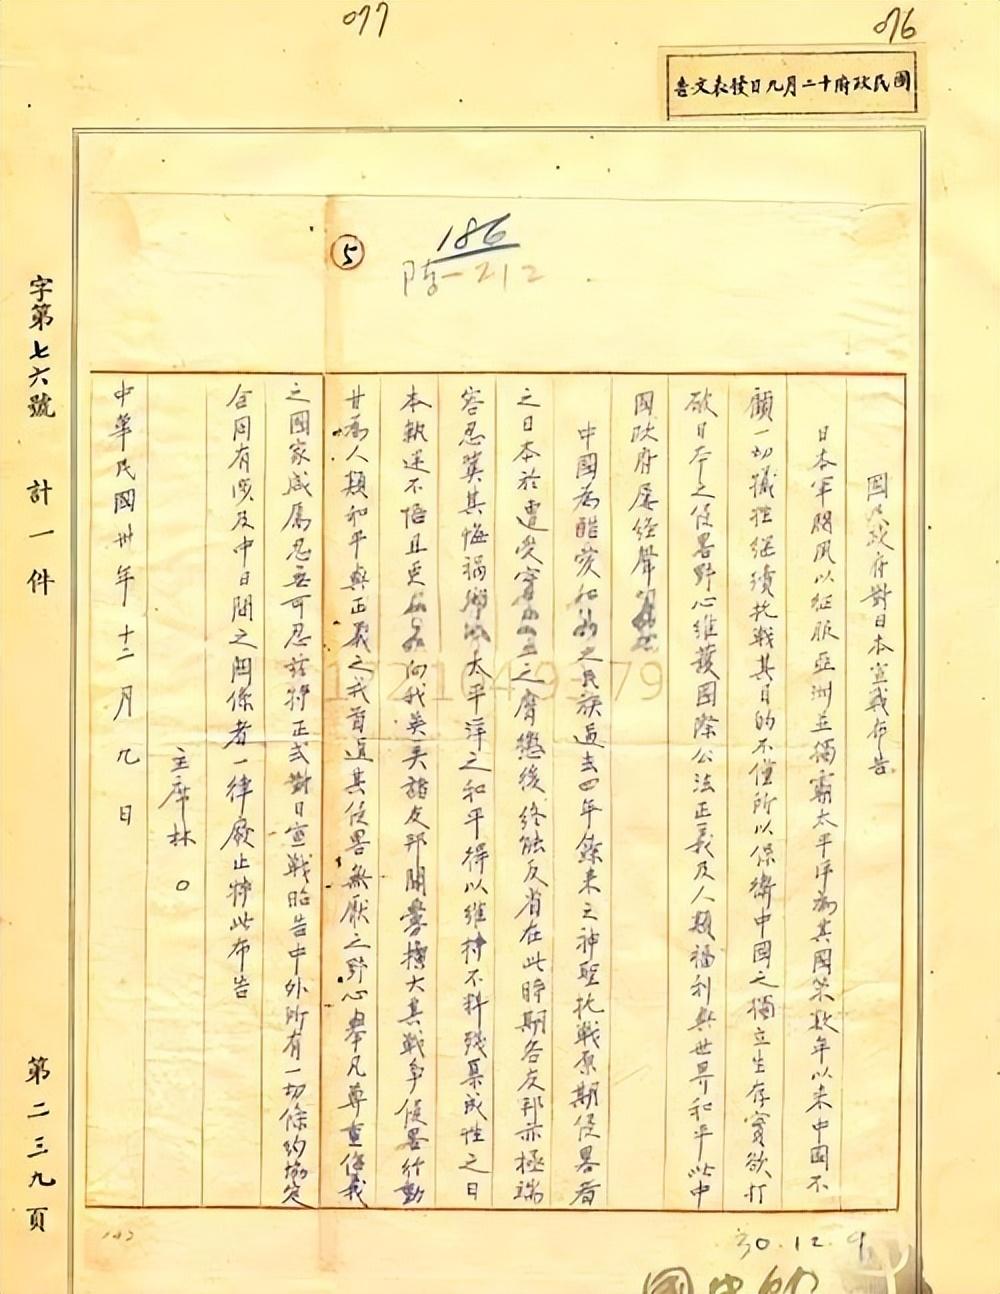 077
076
國民政府十二月九日發表文告
186
5
陣一212
國民政府對日本宣戰布告
日本軍閥夙以征服亞洲並獨霸太平洋為其國策數年以來中國不
顧一切犧牲繼續抗戰其目的不僅所以保衛中國之獨立生存實欲打
破日本之侵畧野心維護國際公法正義及人類福利與世界和平此中
國政府屢經聲
中國為酷愛和平之民族過去四年餘來之神聖抗戰原期侵畧者
之日本於遭受實之膺懲後終能反省在此時期各友邦亦極端
容忍冀其悔禍太平洋之和平得以維持不料殘暴成性之日
本執迷不悟且更向我英美諸友邦開釁擴大其戰爭侵畧行動
甘為人類和平與正義之戎首逞其侵畧無厭之野心舉凡尊重信義
之國家咸屬忍無可忍茲特正式對日宣戰昭告中外所有一切條約協定
合同有涉及中日間之關係者一律廢止特此布告
主席林〇
中華民國卅年十二月九日
字第七六號 計一件 第二三九頁
30.12.9